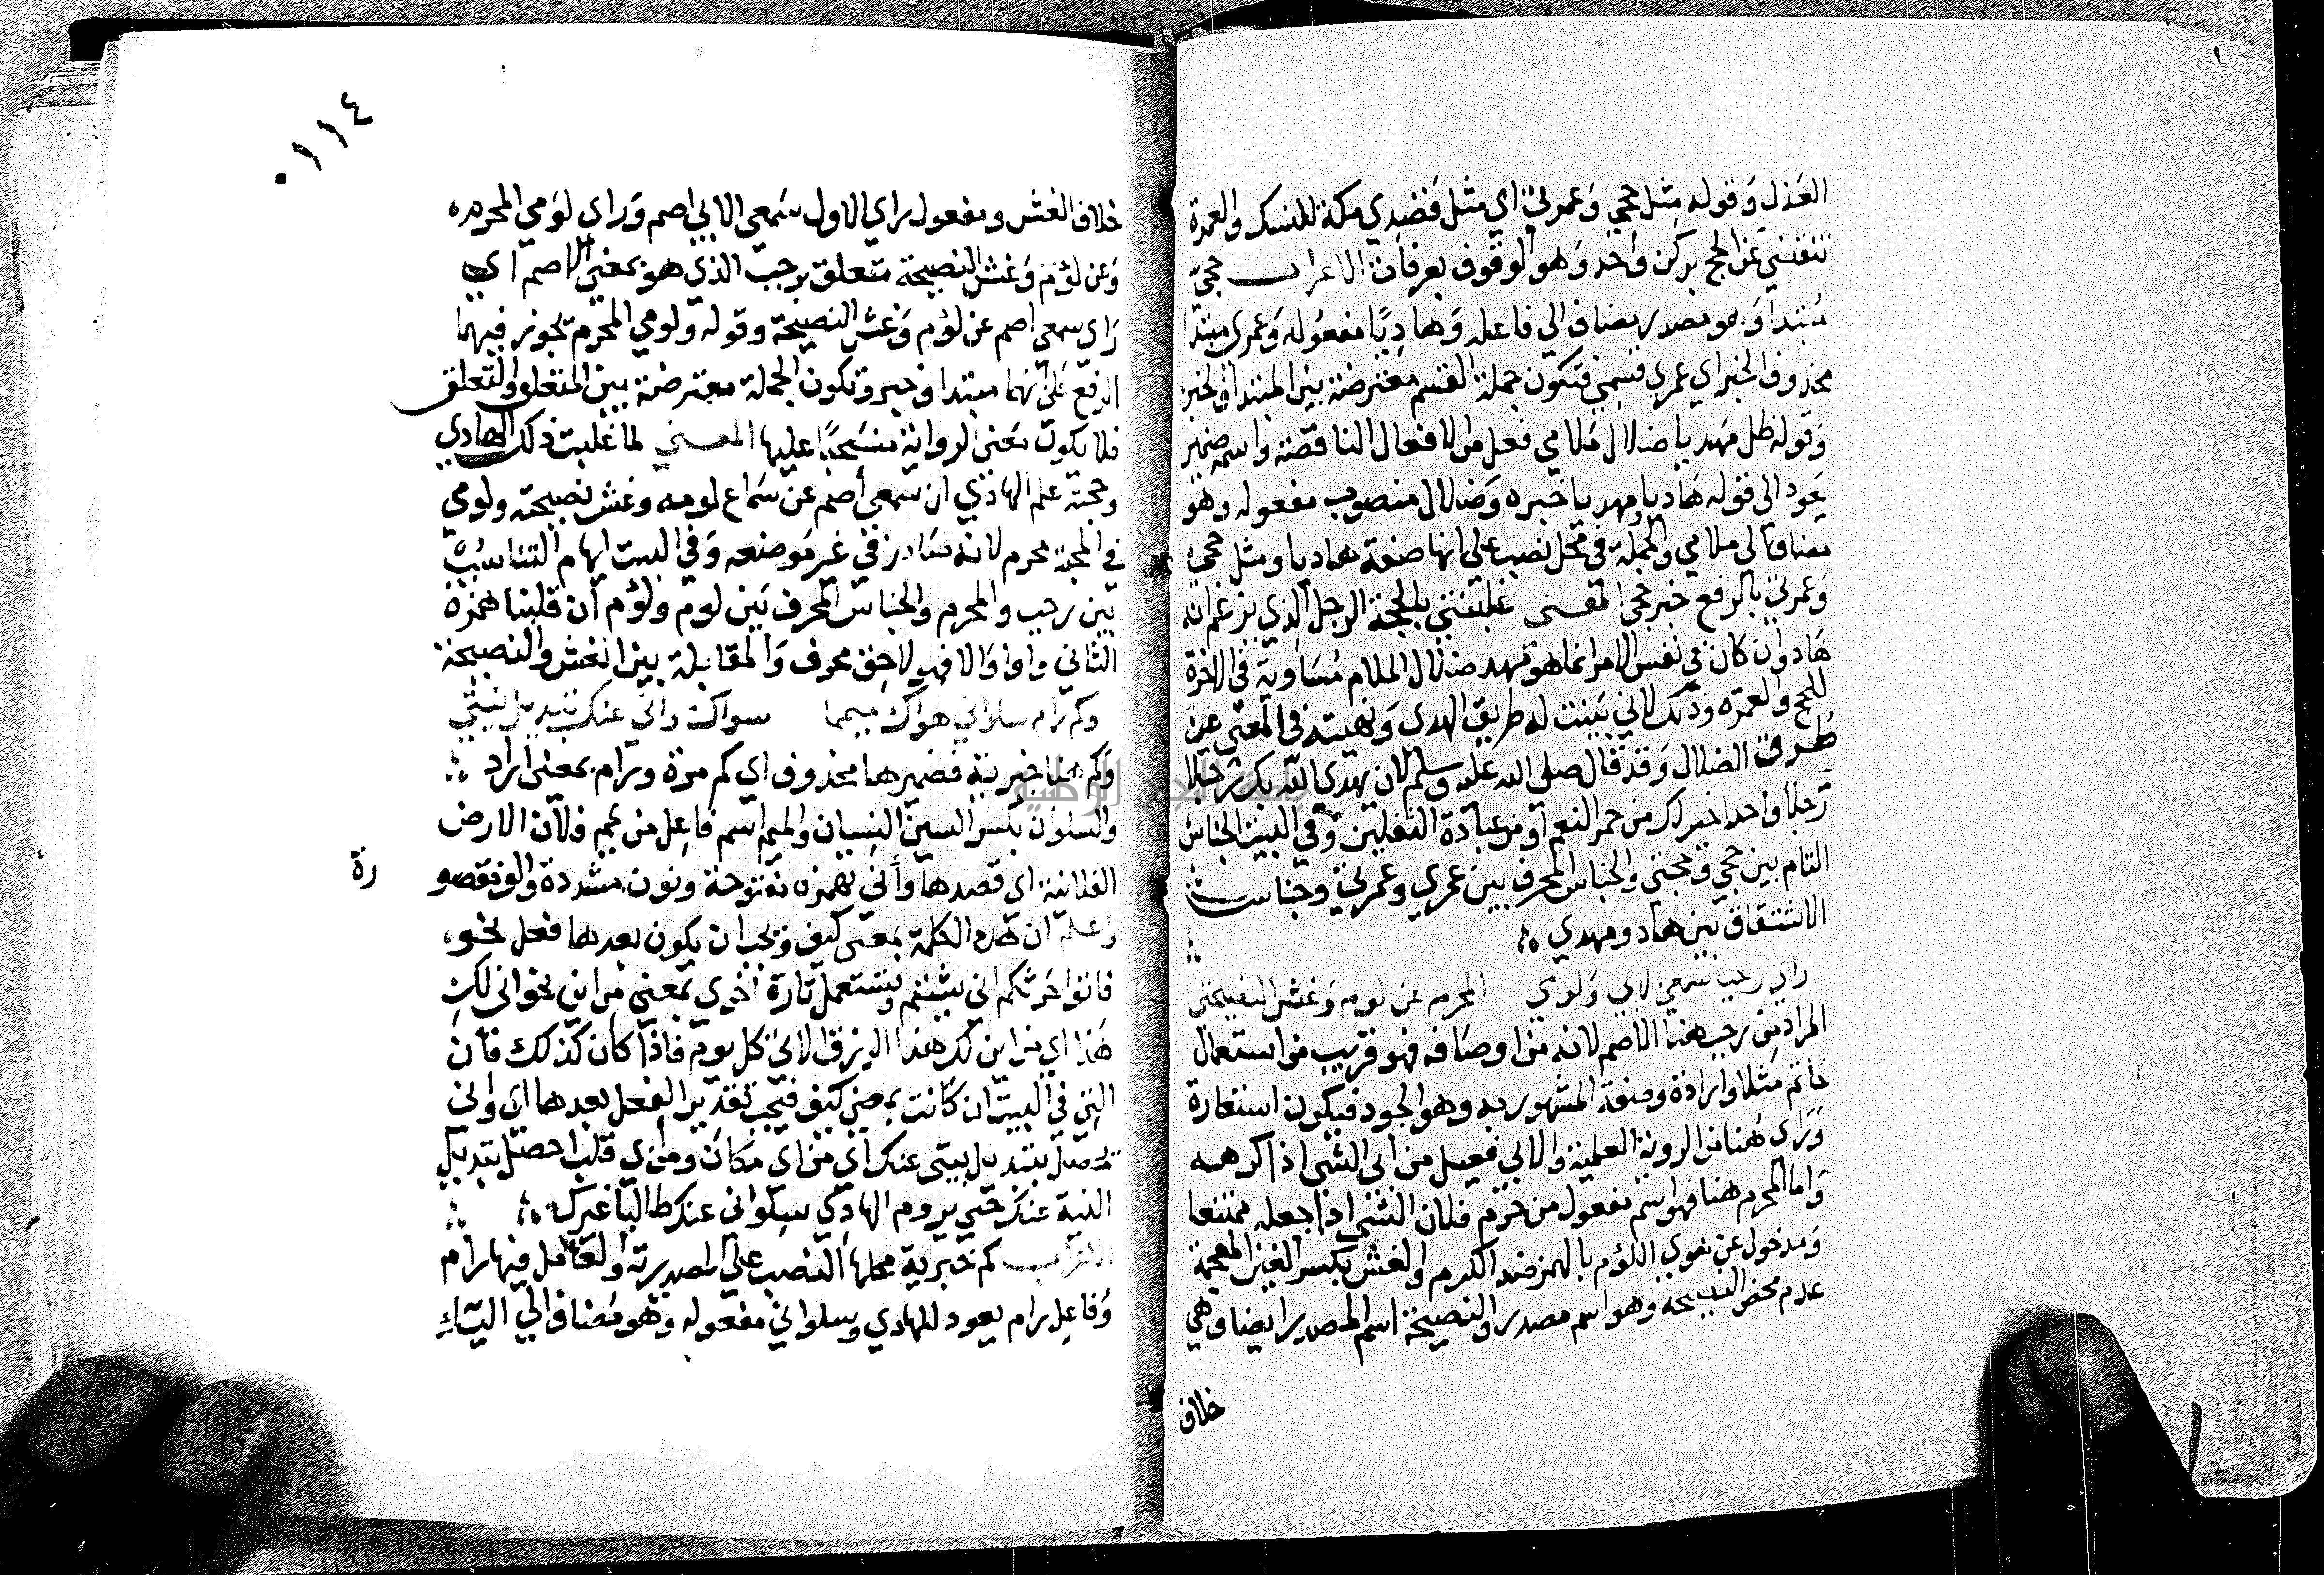 العذل وقوله مثل حجي وعمرتي اي مثل قصدي مكة للنسك والعمرة
عن الحج بركن واحد وهو الوقوف بعرفات الاعراب حجي
مبتدا وهو مصدر مضاف الى فاعله وهاديا مفعوله وعمري مبتدا
محذوف الخبر اي عمري قسمي فتكون جملة القسم معترضة بين المبتدا والخبر
وقوله ظل مهديا ضلال ملامي فعل من الافعال الناقصة واسمه ضمير
يعود الى قوله هاديا ومهديا خبره وضلال منصوب مفعوله وهو
مضاف الى ملامي والجملة في محل نصب على انها صفة هاديا ومثل حجي
وعمرتي بالرفع خبر حجي المعنى غلبتني بالحجة الرجل الذي يزعم انه
هاد وان كان في نفس الامر انما هو مهد ضلال الملام مساوية في الاخرة
للحج والعمرة وذلك لاني بينت له طريق الهدى ونهيته في المعنى عن
طرق الضلال وقد قال صلى الله عليه وسلم لان يهدي الله بك رجلا
رجلا واحدا خير لك من حمر النعم او من عبادة الثقلين وفي البيت الجناس
التام بين حجي ومحجتي والجناس المحرف بين عمري وعمرتي وجناس
الاشتقاق بين هاد ومهدي
راى رجبا سمعي الابي ولومي المحرم عن لوم وغش النصيحتي
المراد من رجب هنا الاصم لانه من اوصافه فهو قريب من استعمال
حاتم مثلا وارادة وصفه المشهور به وهو الجود فيكون استعارة
وراى هنا من الروية العلمية والابي فعيل من ابى الشي اذا كرهه
واما المحرم هنا فهو اسم مفعول من حرم فلان الشي اذا جعله ممتنعا
ومدخول عن سوى اللؤم بالهمز ضد الكرم والغش بكسر الغين المعجمة
عدم محض النصيحة وهو اسم مصدر والنصيحة اسم المصدر ايضا وهي
خلاف
٠١١٤
خلاف الغش ومفعول راي الاول سمعي الابي اصم وراى لومي المحرم
وعن لؤم وغش النصيحة متعلق برجب الذي هو بمعنى الاصم اي
راى سمعي اصم عن لؤم وغش النصيحة وقوله ولومي المحرم يجوز فيهما
الرفع على انهما مبتدا وخبر وتكون الجملة معترضة بين المتعلق والمتعلق
فلا يكون معنى الرواية منسحبا عليها المعنى لما غلبت ذلك الهادي
وحجته علم الهادي ان سمعي اصم عن سماع لومه وغش نصيحته ولومي
في المحبة محرم لانه صادر في غير موضعه وفي البيت ايهام التناسب
بين رجب والمحرم والجناس المحرف بين لوم ولؤم ان قلبنا همزة
الثاني واوا والا فهو لاحق محرف والمقابلة بين الغش والنصيحة
وكم رام سلواني هواك ميمما سواك واني عنك تبديل نيتي
وكم هنا خبرية فضميرها محذوف اي كم مرة ورام بمعنى اراد
والسلوان بكسر السين النسيان والميمم اسم فاعل من يمم فلان الارض
الفلانية اي قصدها وأنى بهمزة مفتوحة ونون مشددة والف مقصو
رة
واعلم ان هذه الكلمة بمعنى كيف ويجب ان يكون بعدها فعل نحو
فاتوا حرثكم انى شئتم وتستعمل تارة اخرى بمعنى من اين نحو انى لك
هذا اي من اين لك هذا الرزق الاتي كل يوم فاذا كان كذلك فأن
التي في البيت ان كانت بمعنى كيف فيجب تقدير الفعل بعدها اي وانى
تحصل تبديل نيتي عنك اي من اي مكان ومن اي قلب احصل تبديل
النية عنك حتى يروم الهادي سلواني عنك طالبا غيرك
الاعراب كم خبرية محلها النصب على المصدرية والعامل فيها رام
وفاعل رام يعود للهادي وسلواني مفعوله وهو مضاف الى الياء